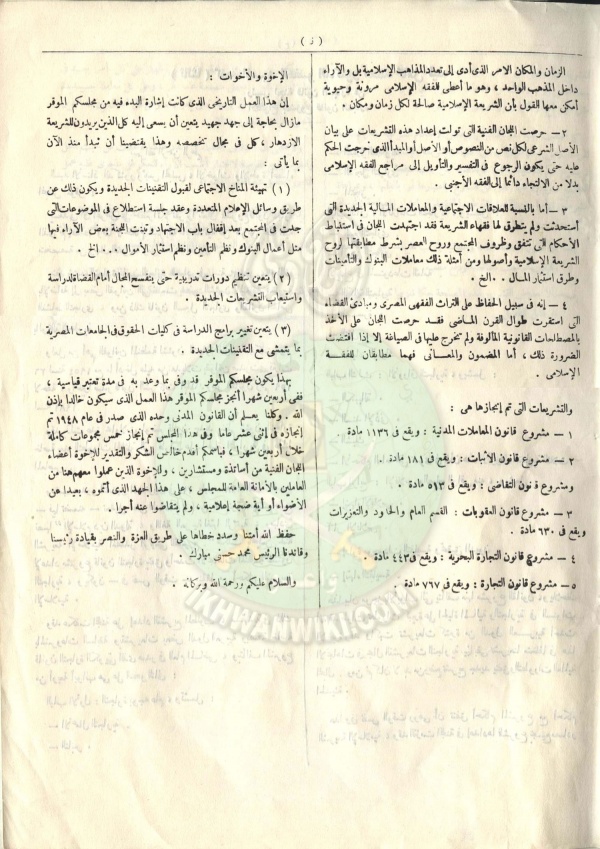 ( ز )
الزمان والمكان الامر الذى أدى إلى تعدد المذاهب الإسلامية بل والآراء
داخل المذهب الواحد ، وهو ما أعطى للفقه الإسلامى مرونة وحيوية
أمكن معها القول بأن الشريعة الإسلامية صالحة لكل زمان ومكان .
٢ – حرصت اللجان الفنية التى تولت إعداد هذه التشريعات على بيان
الأصل الشرعى لكل نص من النصوص أو الأصل أو المبدأ الذى خرجت الحكم
عليه حتى يكون الرجوع فى التفسير والتأويل إلى مراجع الفقه الإسلامى
بدلا من الالتجاء دائما إلى الفقه الأجنبى .
٣ – أما بالنسبة للعلاقات الاجتماعية والمعاملات المالية الجديدة التى
استحدثت ولم يتطرق لها فقهاء الشريعة فقد اجتهدت اللجان فى استنباط
الأحكام التى تتفق وظروف المجتمع وروح العصر بشرط مطابقتها لروح
الشريعة الإسلامية وأصولها ومن أمثلة ذلك معاملات البنوك والتأمينات
وطرق استثمار المال . . الخ .
٤ – إنه فى سبيل الحفاظ على التراث الفقهى المصرى ومبادئ القضاء
التى استقرت طوال القرن الماضى فقد حرصت اللجان على الأخذ
بالمصطلحات القانونية المألوفة ولم تخرج عليها فى الصياغة إلا إذا اقتضت
الضرورة ذلك ، أما المضمون والمعانى فهما مطابقان للفقه
الإسلامى .
والتشريعات التى تم إنجازها هى :
١ – مشروع قانون المعاملات المدنية : ويقع فى ١١٣٦ مادة
٢ – مشروع قانون الأثبات : ويقع فى ١٨١ مادة .
ومشروع قانون التقاضى : ويقع فى ٥١٣ مادة .
٣ – مشروع قانون العقوبات : القسم العام والحدود والتعزيرات
ويقع فى ٦٣٠ مادة .
٤ – مشروع قانون التجارة البحرية : ويقع فى ٤٤٣ مادة .
٥ – مشروع قانون التجارة : ويقع فى ٧٦٧ مادة .
الإخوة والأخوات :
إن هذا العمل التاريخى الذى كانت إشارة البدء فيه من مجلسكم الموقر
مازال بحاجة إلى جهد جهيد يتعين أن يسعى إليه كل الذين يريدون للشريعة
الازدهار ، كل فى مجال تخصصه وهذا يقتضينا أن نبدأ منذ الآن
بما يأتى :
( ١ ) تهيئة المناخ الاجتماعى لقبول التقنينات الجديدة ويكون ذلك عن
طريق وسائل الإعلام المتعددة وعقد جلسة استطلاع فى الموضوعات التى
جدت فى المجتمع بعد إقفال باب الاجتهاد وتبنت اللجنة بعض الآراء فيها
مثل أعمال البنوك ونظم التأمين ونظم استثمار الأموال ... الخ .
( ٢ ) يتعين تنظيم دورات تدريبية حتى ينفسح المجال أمام القضاة لدراسة
واستيعاب التشريعات الجديدة .
( ٣ ) يتعين تغيير برامج الدراسة فى كليات الحقوق فى الجامعات المصرية
بما يتمشى مع التقنينات الجديدة .
بهذا يكون مجلسكم الموقر قد وفى بما وعد به فى مدة تعتبر قياسية ،
ففى أربعين شهرا أنجز مجلسكم الموقر هذا العمل الذى سيكون خالدا بإذن
الله . وكلنا يعلم أن القانون المدنى وحده الذى صدر فى عام ١٩٤٨ تم
إنجازه فى إثنى عشر عاما وفى هذا المجلس تم إنجاز خمس مجموعات كاملة
خلال أربعين شهرا ، فباسمكم أقدم خالص الشكر والتقدير للإخوة أعضاء
اللجان الفنية من أساتذة ومستشارين ، وللإخوة الذين عملوا معهم هنا من
العاملين بالأمانة العامة للمجلس ، على هذا الجهد الذى أتموه ، بعيدا عن
الأضواء أو أية ضجة إعلامية ، ولم يتقاضوا عنه أجرا .
حفظ الله أمتنا وسدد خطاها على طريق العزة والنصر بقيادة رئيسنا
وقائدنا الرئيس محمد حسنى مبارك .
والسلام عليكم ورحمة الله وبركاته .
IKHWANWIKI.COM